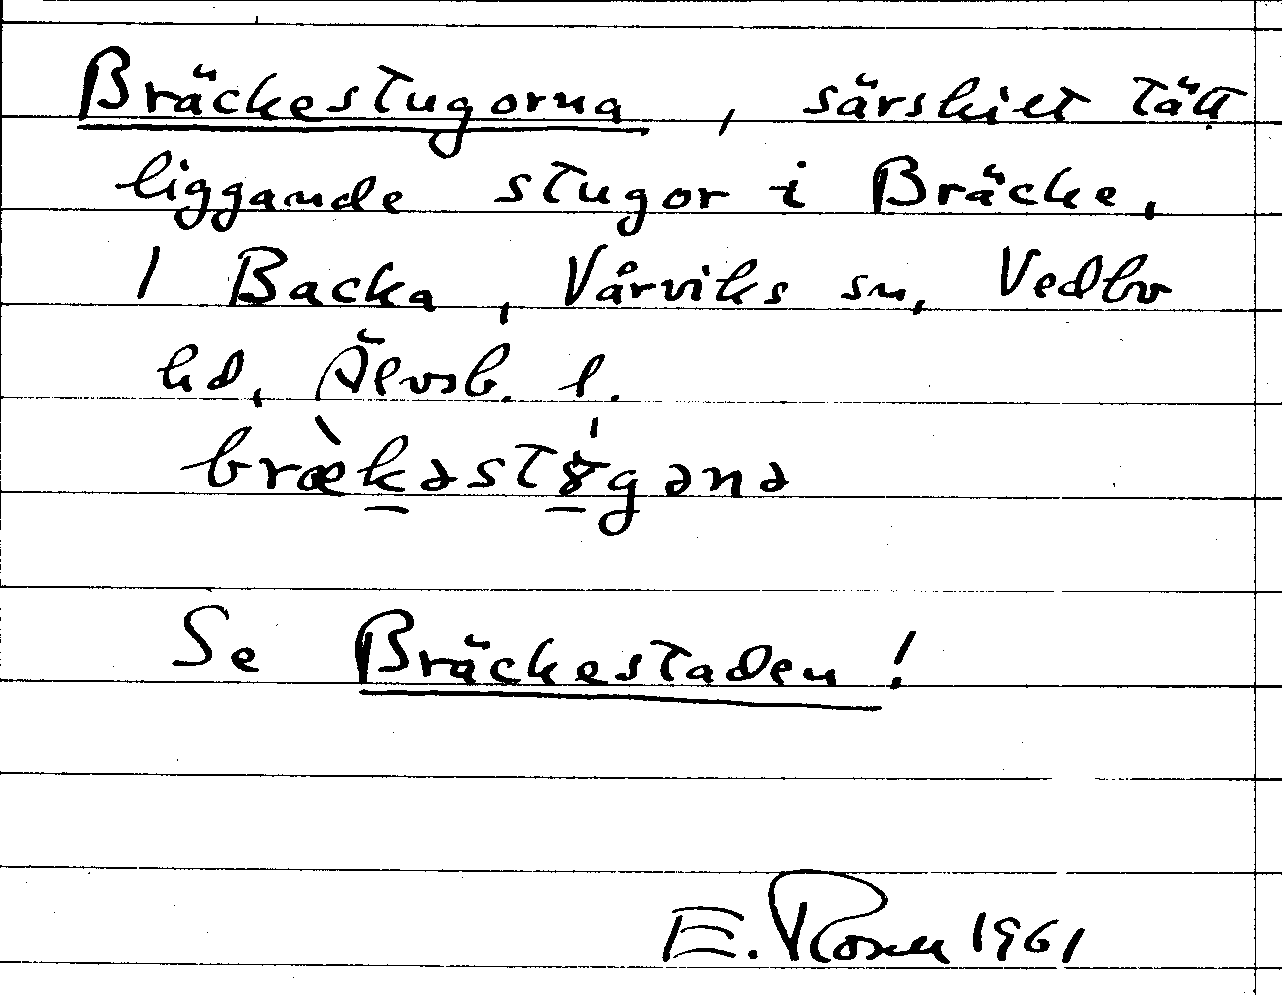 Bräckestugorna, särskilt tätt
liggande stugor i Bräcke,
1 Backa, Vårviks sn, Vedbo
hd, Älvsb. l.
bræ̀kəstɤ̍gənə
Se Bräckestaden!
E. Rosell 1961